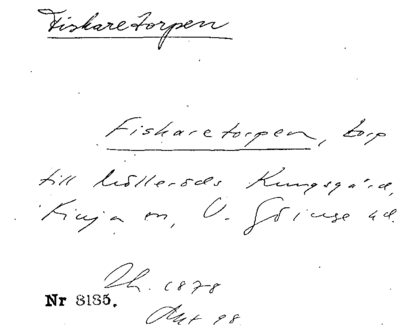 Fiskaretorpen
Fiskaretorpen, torp
till Mölleröds Kungsgård,
Finja sn, V. Göinge hd.
Dh. 1878
Nr 8185.
Akt 98